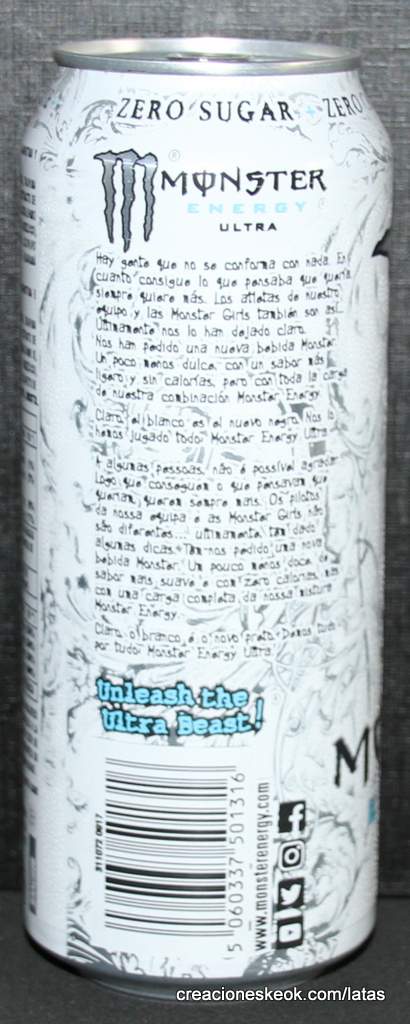 ZERO SUGAR + ZERO
MONSTER
ENERGY
ULTRA
Hay gente que no se conforma con nada. En
cuanto consigue lo que pensaba que quería
siempre quiere más. Los atletas de nuestro
equipo y las Monster Girls también son así.
Últimamente nos lo han dejado claro.
Nos han pedido una nueva bebida Monster.
Un poco menos dulce, con un sabor más
ligero y sin calorías, pero con toda la carga
de nuestra combinación Monster Energy.
Claro, el blanco es el nuevo negro. Nos lo
hemos jugado todo! Monster Energy Ultra.
A algumas pessoas, não é possível agradar.
Logo que conseguem o que pensavam que
queriam, querem sempre mais. Os pilotos
da nossa equipa e as Monster Girls não
são diferentes... ultimamente, têm dado
algumas dicas. Têm-nos pedido uma nova
bebida Monster. Um pouco menos doce, de
sabor mais suave e com zero calorias, mas
com uma carga completa da nossa mistura
Monster Energy.
Claro, o branco é o novo preto. Demos tudo
por tudo! Monster Energy Ultra.
Unleash the
Ultra Beast!
311072 0617
5 060337 501316
www.monsterenergy.com
creacioneskeok.com/latas